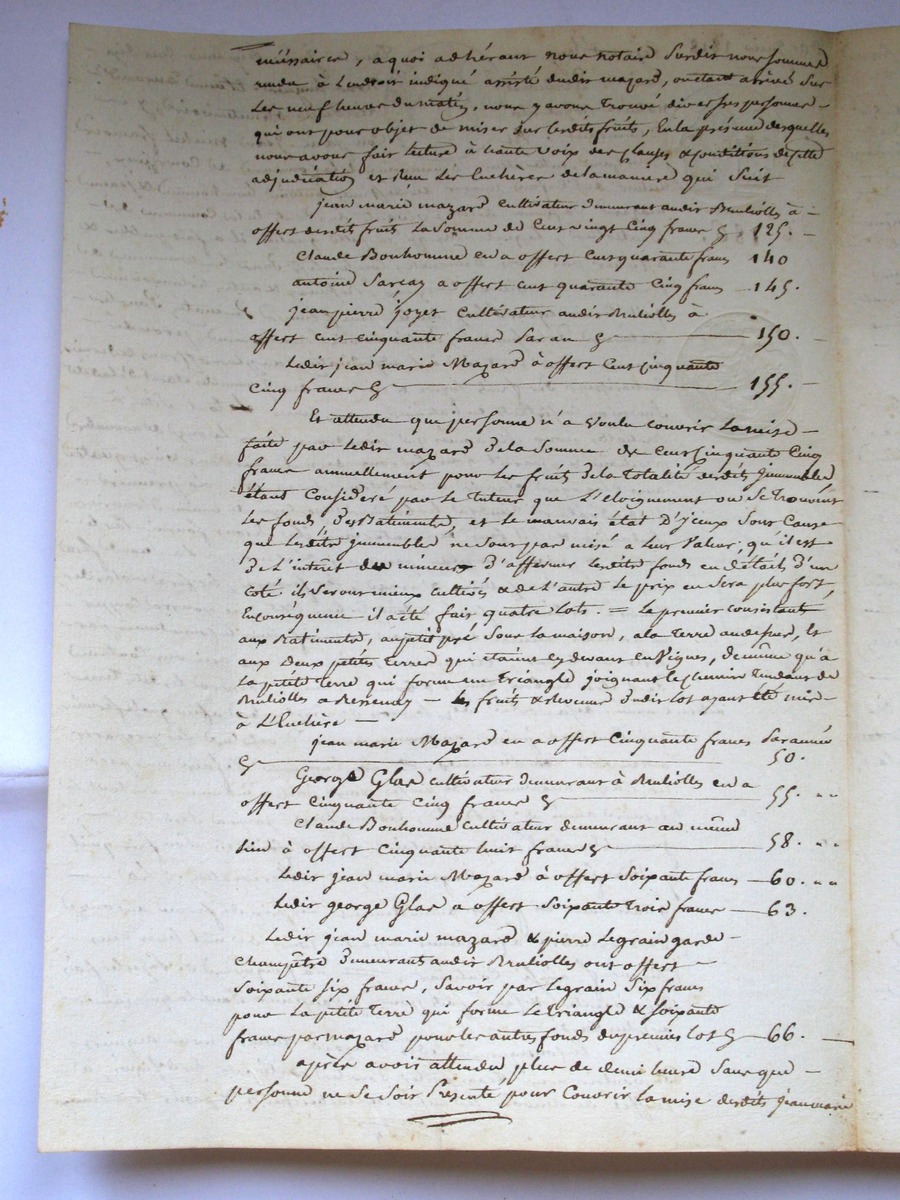 nécessaires, a quoi adhérant nous notaire Susdit nous sommes
rendu à L'endroit indiqué assisté dudit mazard, ou etant arrivés Sur
Les neuf heures du matin, nous y avons Trouvé diverses personnes
qui ont pour objet de miser sur lesdits fruits, En la présence desquelles
nous avons fait lecture à haute voix des clauses & conditions de cette
adjudication et Reçu Les Enchères de la manière qui Suit
jean marie mazard Cultivateur demeurant audit Brullioles à
offert desdits fruits La Somme de Cent vingt Cinq francs 125.
Claude Bonhomme en a offert Cent quarante francs 140
antoine Sarcay a offert cent quarante Cinq francs 145.
jean pierre joyet Cultivateur audit Brullioles à
offert cent cinquante francs par an 150.
Ledit jean marie Mazard à offert Cent cinquante
Cinq francs 155.
Et attendu que personne n'a Voulu couvrir La mise
faite par Ledit mazard de la Somme de Cent Cinquante Cinq
francs annuellement pour les fruits de la Totalité desdits Immeubles
étant Considéré par le Tuteur que L'éloignement ou Se Trouvent
Les fonds des Batiments, et le mauvais état D'yceux Sont Cause
que Lesdits immeubles ne Sont pas misé a Leur Valeur, qu'il est
de L'intérêt du mineur d'affermer Lesdits fonds en détail, d'un
Coté ils Seront mieux Cultivés & de L'autre Le prix en Sera plus fort,
En conséquence il a été fait quatre Lots. = Le premier consistant
aux Batiments, au petit pré Sous La maison, a la Terre au dessus, Et
aux Deux petites Terres qui étaient cy devant en Vignes, de même qu'a
La petite Terre qui forme un Triangle joignant le chemin Tendant de
Brullioles a Bessenay — Les fruits & revenus dudit Lot ayant été mis
à L'Enchère —
jean marie Mazard en a offert Cinquante francs Par année
50.
George Glas Cultivateur demeurant à Brullioles en a
offert Cinquante Cinq francs 55.
Claude Bonhomme Cultivateur demeurant au même
Lieu à offert Cinquante huit francs 58.
Ledit jean marie Mazard à offert Soixante francs 60.
Ledit george Glas a offert Soixante Trois francs 63.
Ledit jean marie mazard & pierre Legrain garde
Champêtre demeurant audit Brullioles ont offert
Soixante Six francs, Savoir par Legrain Six francs
pour La petite Terre qui forme Le Triangle & Soixante
francs par mazard pour les autres fonds du premier Lot 66.
après avoir attendu plus de demi heure Sans que
personne ne Se Soit Présenté pour Couvrir la mise desdits Jean marie